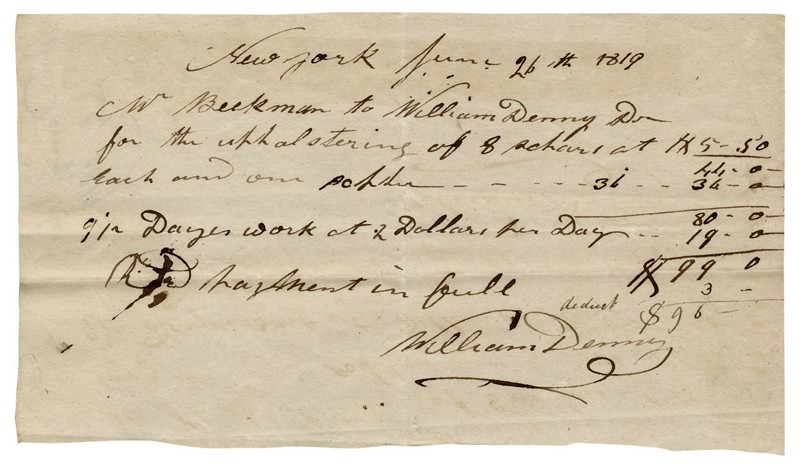 New york June 26th 1819
Mr Beekman to William Denny Dr
for the uphalstering of 8 schars at $5-50
44-0-
Each and one sophha - - - - - 36 - - 36-0
80-0-
9 1/2 Dayes work at 2 Dollars per Day - - 19-0
$99 0
Rd payment in full
3 -
deduct $96-
William Denny